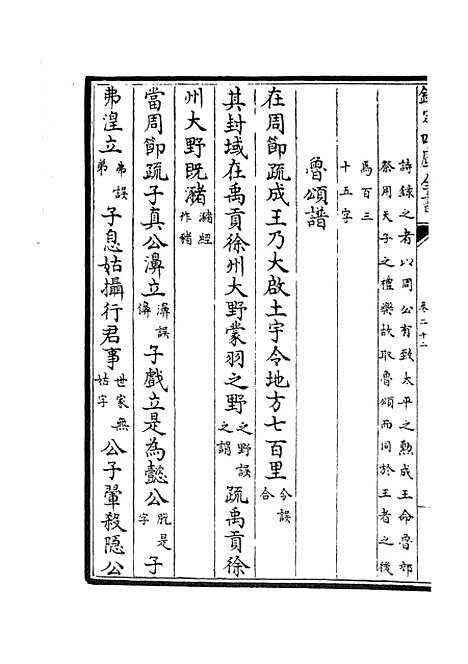 欽定四庫全書
卷二十二
詩錄之者以周公有致太平之勲成王命魯郊
祭用天子之禮樂故取魯頌而同於王者之後
焉百三
十五字
魯頌譜
在周節疏成王乃大啟土宇令地方七百里令誤合
其封域在禹貢徐州大野蒙羽之野之野誤之謂疏禹貢徐
州大野既瀦瀦經作豬
當周節疏子真公濞立濞誤子戲立是為懿公脫是字子
弗湟立弗誤弟子息姑攝行君事世家無姑字公子翬殺隱公